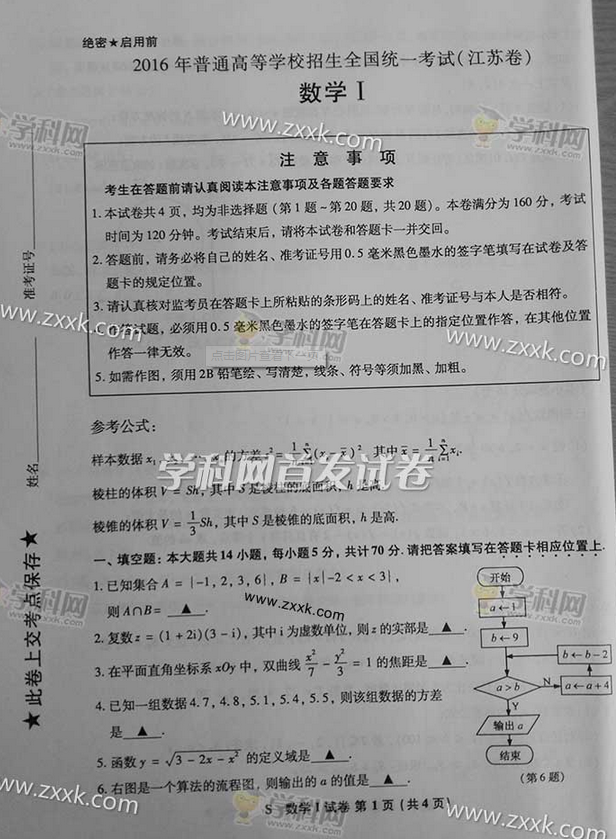 绝密★启用前
2016 年普通高等学校招生全国统一考试(江苏卷)
数学 I
注意事项
考生在答题前请认真阅读本注意事项及各题答题要求
1. 本试卷共 4 页, 均为非选择题 (第 1 题 ~ 第 20 题, 共 20 题). 本卷满分为 160 分, 考试
时间为 120 分钟. 考试结束后, 请将本试卷和答题卡一并交回.
2. 答题前, 请务必将自己的姓名、准考证号用 0.5 毫米黑色墨水的签字笔填写在试卷及答
题卡的规定位置.
3. 请认真核对监考员在答题卡上所粘贴的条形码上的姓名、准考证号与本人是否相符.
作答试题, 必须用 0.5 毫米黑色墨水的签字笔在答题卡上的指定位置作答, 在其他位置
作答一律无效.
5. 如需作图, 须用 2B 铅笔绘、写清楚, 线条、符号等须加黑、加粗.
点击图片查看下一页
参考公式:
样本数据 x₁, 的方差 s² = 1/n Σ(xᵢ − x̄)², 其中 x̄ = 1/n Σxᵢ.
棱柱的体积 V = Sh, 其中 S 是棱柱的底面积, h 是高.
棱锥的体积 V = 1/3 Sh, 其中 S 是棱锥的底面积, h 是高.
一、填空题: 本大题共 14 小题, 每小题 5 分, 共计 70 分. 请把答案填写在答题卡相应位置上.
1. 已知集合 A = {-1, 2, 3, 6}, B = {x|-2 < x < 3},
则 A∩B = ▲ .
2. 复数 z = (1 + 2i)(3 - i), 其中 i 为虚数单位, 则 z 的实部是 ▲ .
3. 在平面直角坐标系 xOy 中, 双曲线 x²/7 - y²/3 = 1 的焦距是 ▲ .
4. 已知一组数据 4.7, 4.8, 5.1, 5.4, 5.5, 则该组数据的方差
是 ▲ .
5. 函数 y = √(3 - 2x - x²) 的定义域是 ▲ .
6. 右图是一个算法的流程图, 则输出的 a 的值是 ▲ .
开始
a←1
b←9
b←b-2
a>b
N
a←a+4
Y
输出 a
结束
(第 6 题)
S 数学 I 试卷 第 1 页 (共 4 页)
准考证号
姓名
★此卷上交考点保存★
学科网首发试卷
学科网
www.zxxk.com
学科网
www.zxxk.com
www.zxxk.com
www.zxxk.com
www.zxxk.com
学科网
学科网
学科网
www.zxxk.com
www.zxxk.com